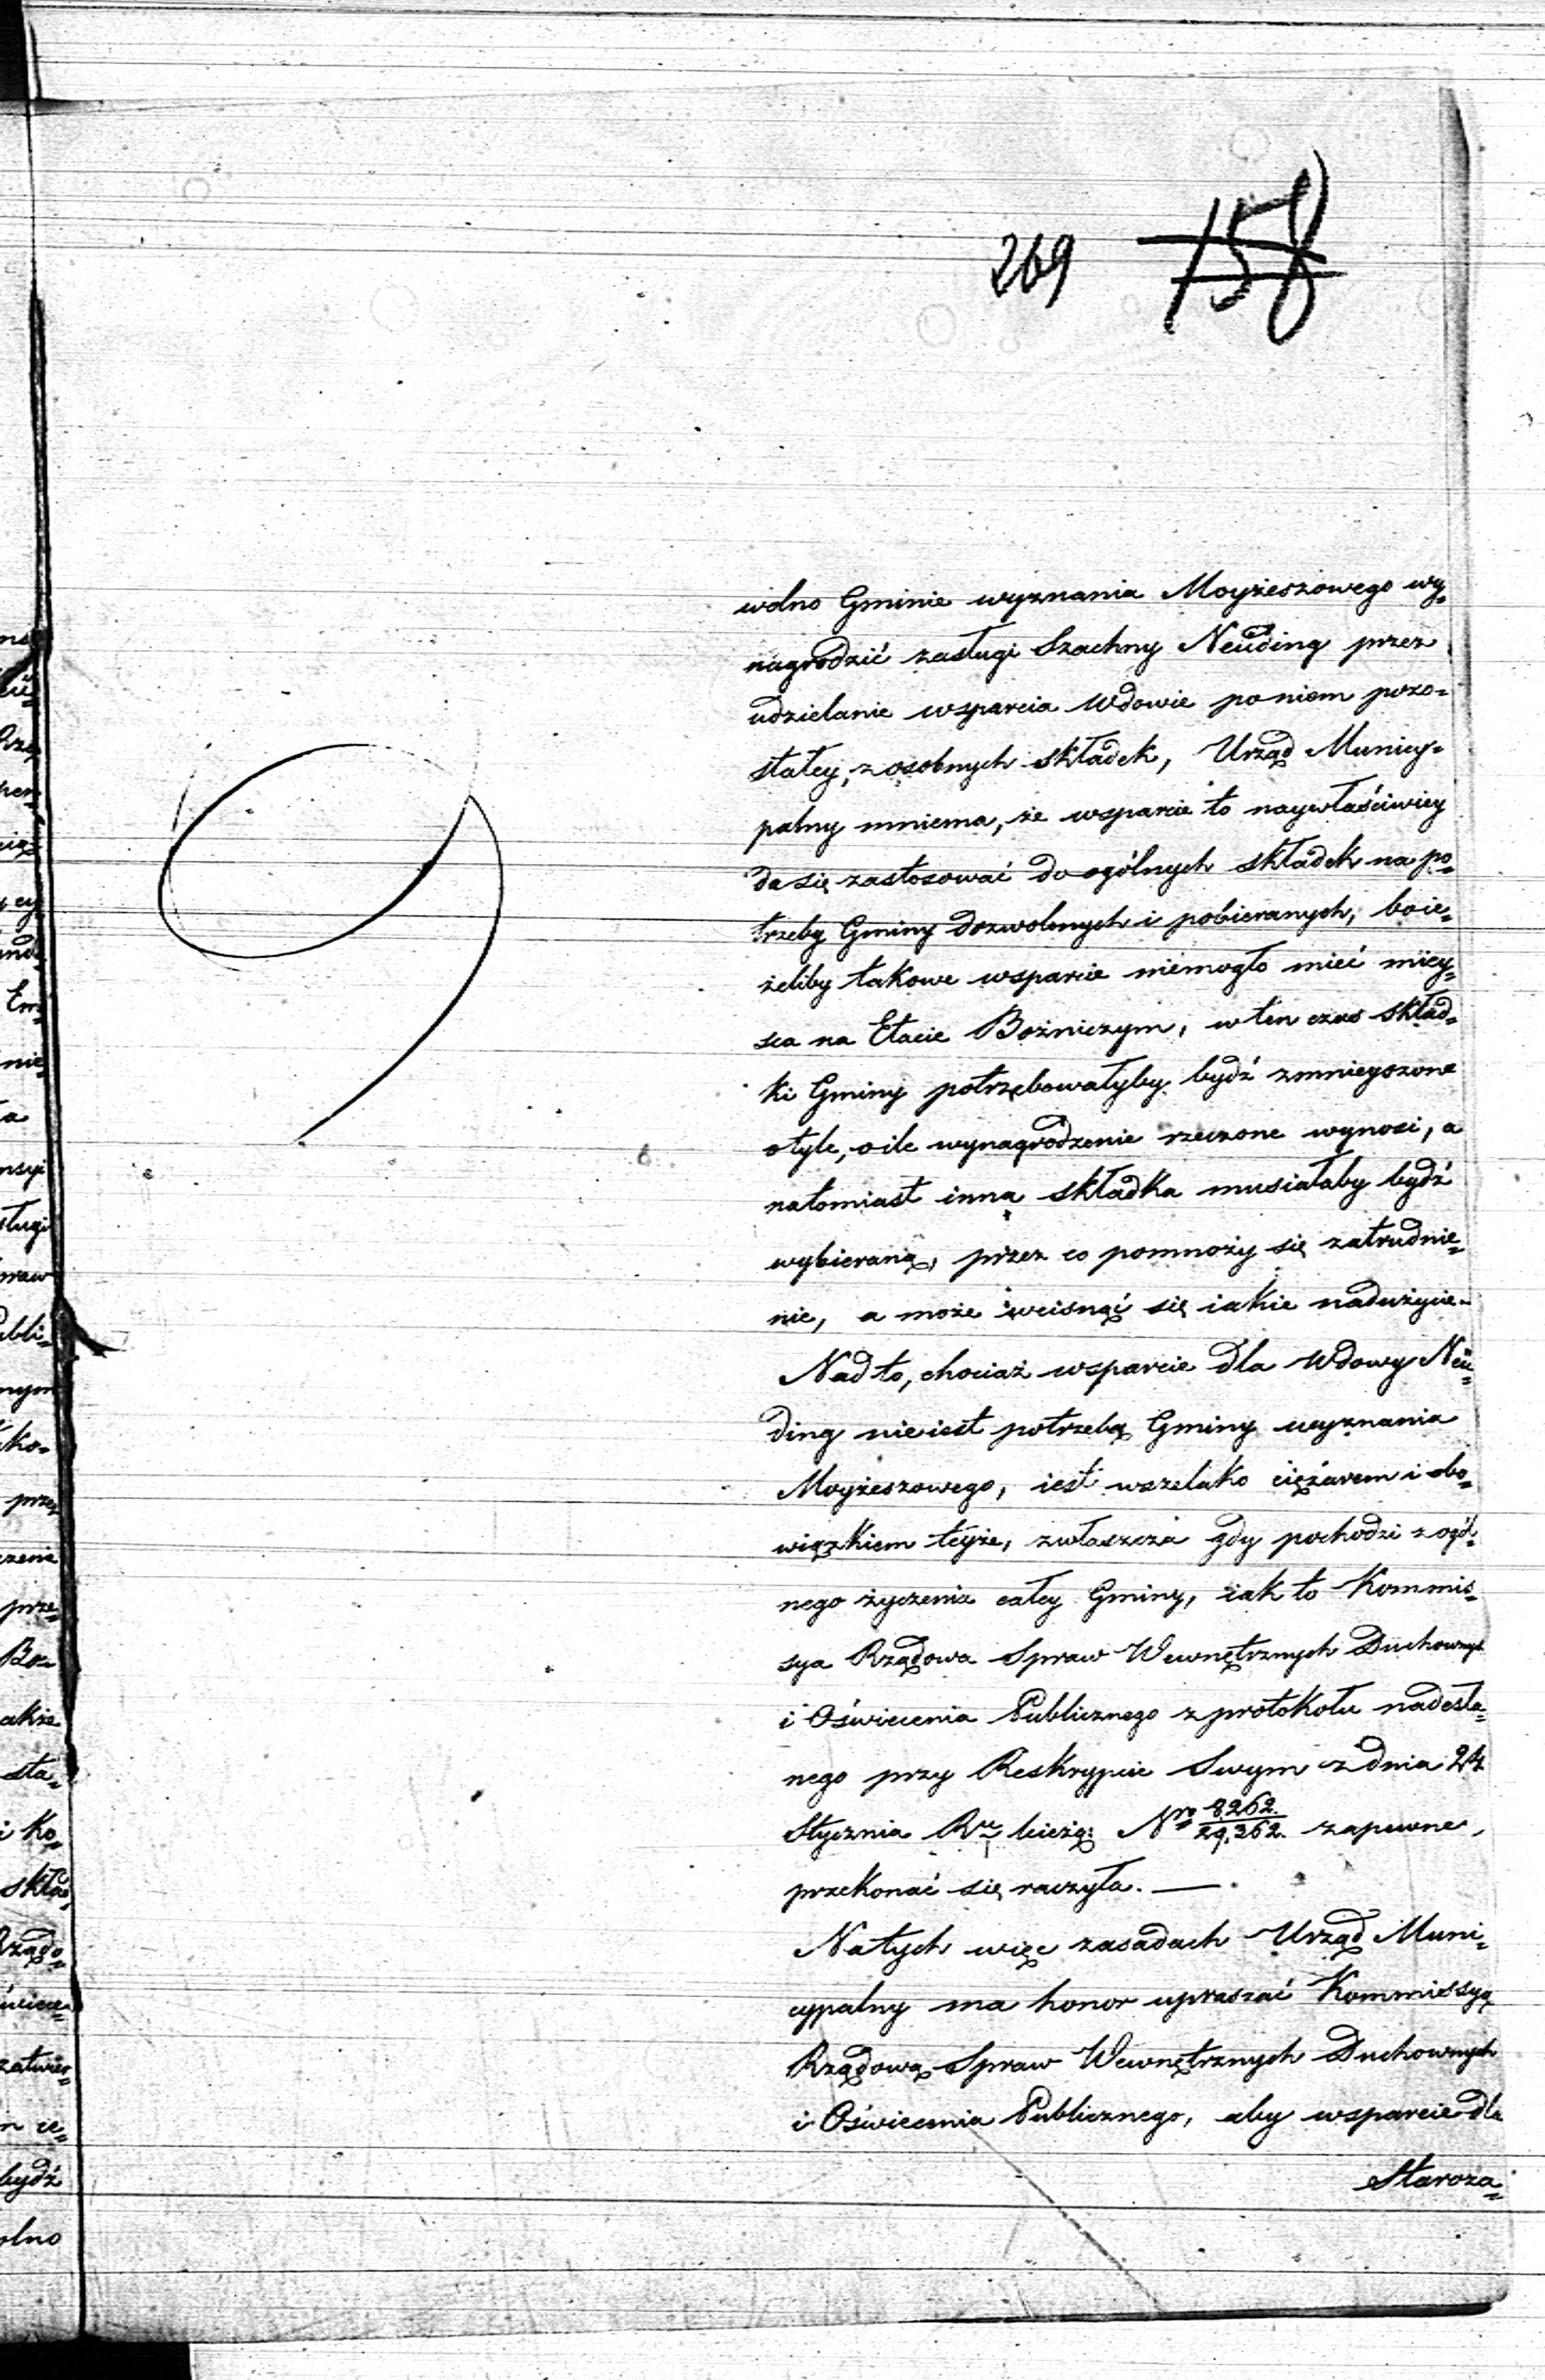 269 158
wolno Gminie wyznania Moyżeszowego wy=
nagrodzić zasługi Szachny Neuding przez
udzielanie wsparcia Wdowie po niem pozo=
stałey, z osobnych składek, Urząd Municy=
palny mniema, że wsparcie to naywłaściwiey
da się zastosować do ogólnych składek na po=
trzeby Gminy dozwolonych i pobieranych, bo ie=
żeliby takowe wsparcie niemogło mieć miey=
sca na Etacie Bożniczym, w ten czas skład=
ki Gminy potrzebowałyby bydź zmnieyszone
o tyle, o ile wynagrodzenie rzeczone wynosi, a
natomiast inna składka musiałaby bydź
wybieraną, przez co pomnoży się zatrudnie=
nie, a może wcisnąć się iakie nadużycie.
Nad to, chociaż wsparcie dla Wdowy Neu=
ding nieiest potrzebą Gminy wyznania
Moyżeszowego, iest wszelako ciężarem i obo=
wiązkiem teyże, zwłaszcza gdy pochodzi z ogól=
nego życzenia całey Gminy, iak to Kommis=
sya Rządowa Spraw Wewnętrznych Duchownych
i Oświecenia Publicznego z protokołu nadesła=
nego przy Reskrypcie Swym z dnia 24
Stycznia Ru bieżą: Nro 8,262./29,362. zapewne,
przekonać się raczyła. —
Na tych więc zasadach Urząd Muni=
cypalny ma honor upraszać Kommissyą
Rządową Spraw Wewnętrznych Duchownych
i Oświecenia Publicznego, aby wsparcie dla
Staroza=